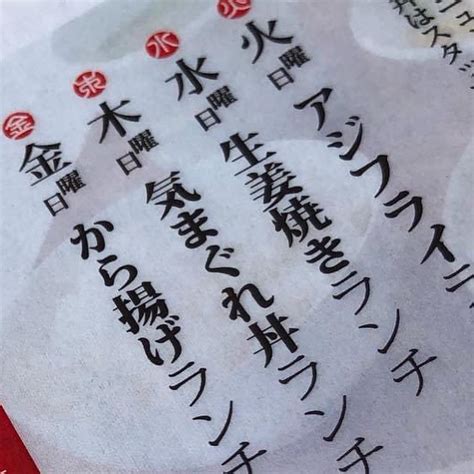 丼はスタッ
火 火曜日 アジフライ
水 水曜日 生姜焼きランチ
木 木曜日 気まぐれ丼ランチ
金 金曜日 から揚げランチ